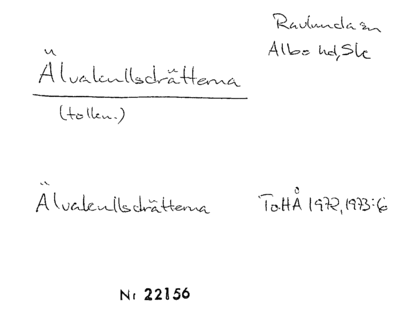 Ravlunda sn
Albo hd, Sk
Älvakullsdrätterna
(tolkn.)
Älvakullsdrätterna ToHÅ 1972, 1973:6
Nr 22156